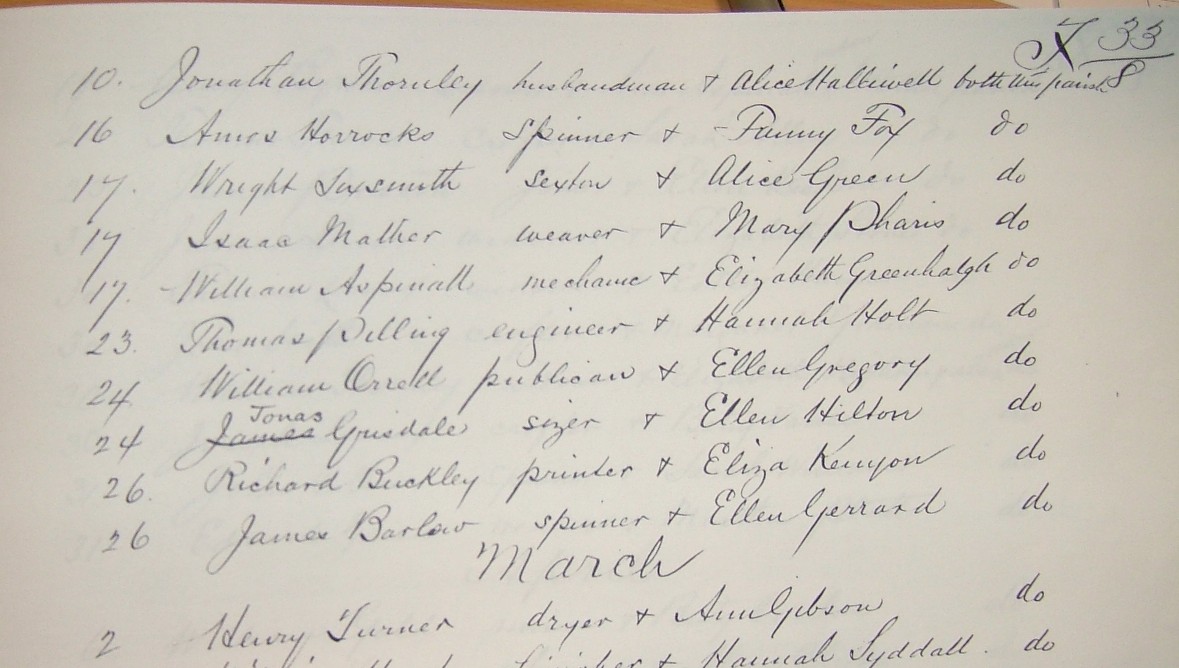 X 33
8
10. Jonathan Thornley husbandman + Alice Halliwell both this parish
16 Amos Horrocks spinner + Fanny Fox do
17. Wright Sixsmith sexton + Alice Green do
17 Isaac Mather weaver + Mary Pharis do
17. William Aspinall mechanic + Elizabeth Greenhalgh do
23. Thomas Pilling engineer + Hannah Holt do
24 William Orrell publican + Ellen Gregory do
Jonas
24 James Grisdale sizer + Ellen Hilton do
26. Richard Buckley printer + Eliza Kenyon do
26 James Barlow spinner + Ellen Gerrard do
March
2 Henry Turner dryer + Ann Gibson do
+ Hannah Lyddall. do